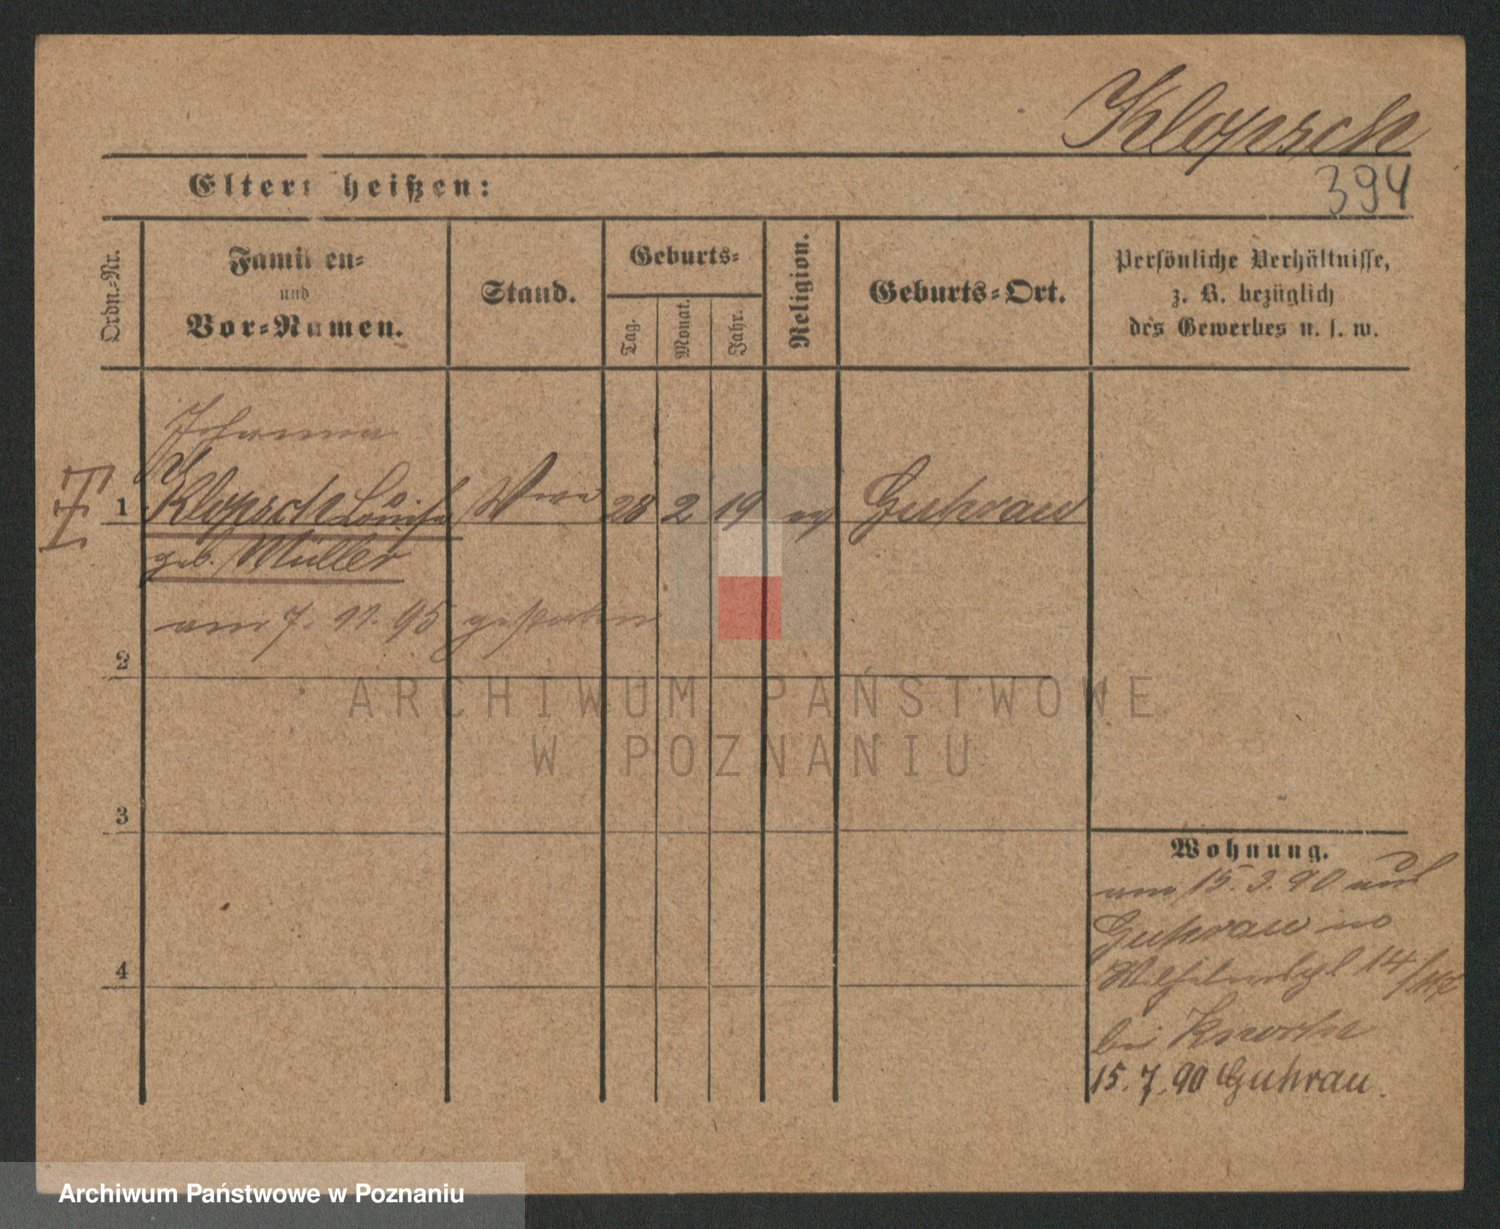 Klopsch
394
Eltern heißen:
Ordn.-Nr.
Familien-
und
Vor-Namen.
Stand.
Geburts-
Tag.
Monat.
Jahr.
Religion.
Geburts-Ort.
Persönliche Verhältnisse,
z. B. bezüglich
des Gewerbes u. s. w.
Johanna
1 Klopsch Louise Wwe 28 2 19 ev Guhrau
geb. Müller
am 7. 11. 95 gestorben
2
ARCHIWUM PAŃSTWOWE
W POZNANIU
3
4
Wohnung.
am 15. 3. 90 aus
Guhrau in
14/
bei
15. 7. 90 Guhrau.
Archiwum Państwowe w Poznaniu